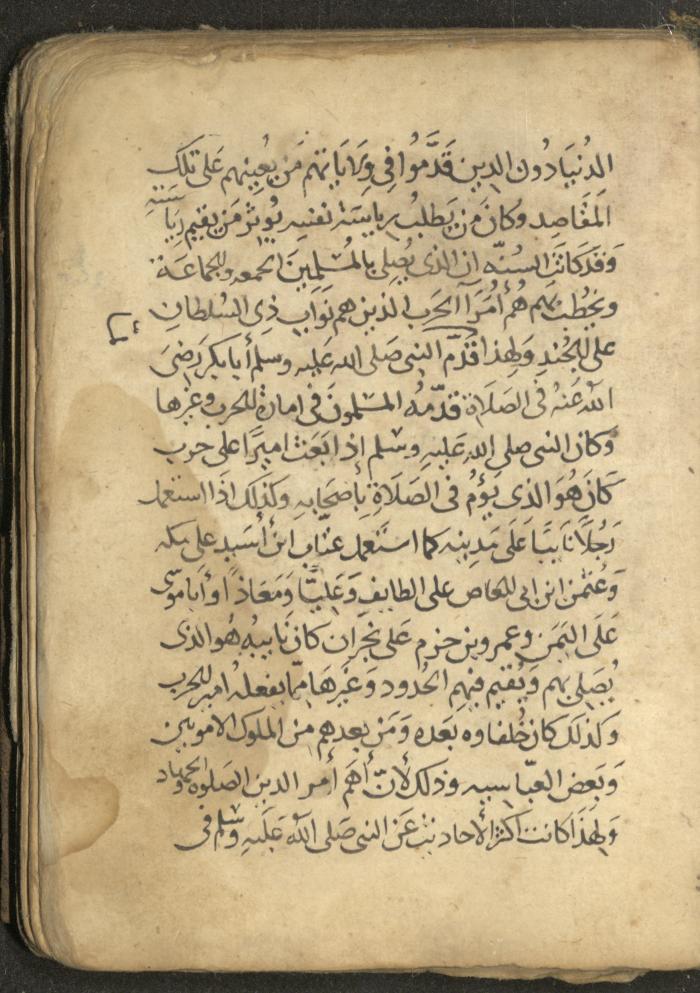 الدُنيَا دُون الدين قَدَّمُوا فِي وِلَايَاتِهم مَن يُعِينهم عَلى تلك
المَقَاصِد وَكانَ مَن يَطلبُ رياسة نفسِه يُوثر مَن يقيم رِيَاسَتهِ
وَقَدكَانَت السُنّه ان الذى يُصلى بالمُسْلِمِينَ الجمعه والجَماعَة
ويخطب بهم هُم أُمَرَآ الحَرب الذين هم نوّاب ذِى السُلطانِ
على الجُندِ ولِهذا قَدَّم النبى صَلى الله عَليه وسلم أبا بكر رَضىَ
اللهُ عَنهُ فى الصَلَاة قدّمهُ المسْلمونَ فى امارة الحرب وغيرها
وكان النبى صلى الله عَليهِ وسْلم اذا بَعَث اميرًا على حرب
كَانَ هُوَ الذى يَؤُمُ فى الصَلَاةِ بأصحَابِهِ وكذلك اذَا استعمل
رَجُلًا نَايبًا عَلَى مَدِينه كما استَعمل عتاب ابن أسَيد على مكه
وَعُثمٰن ابن ابى العَاص على الطايف وَعَليًّا وَمَعَاذًا وأبَا موسى
عَلَى اليَمَن وعمرو بن حزم عَلى نجران كانَ نَايبُهُ هُو الذى
يُصَلى بهم وَيُقيم فيهِم الحُدود وَغَيرهَا ممّا يفعلهُ امير الحرب
وَكذلكَ كان خُلفاوه بَعَده وَمَن بعدهم من الملوك الامويين
وَبَعض العبّاسيه وذلك لأنّ أهَم أمر الدين الصلوه والجهاد
وَلِهَذَا كانت اكثر الأحاديث عَن النبى صَلى اللهُ عَلَيهِ وسْلم فى